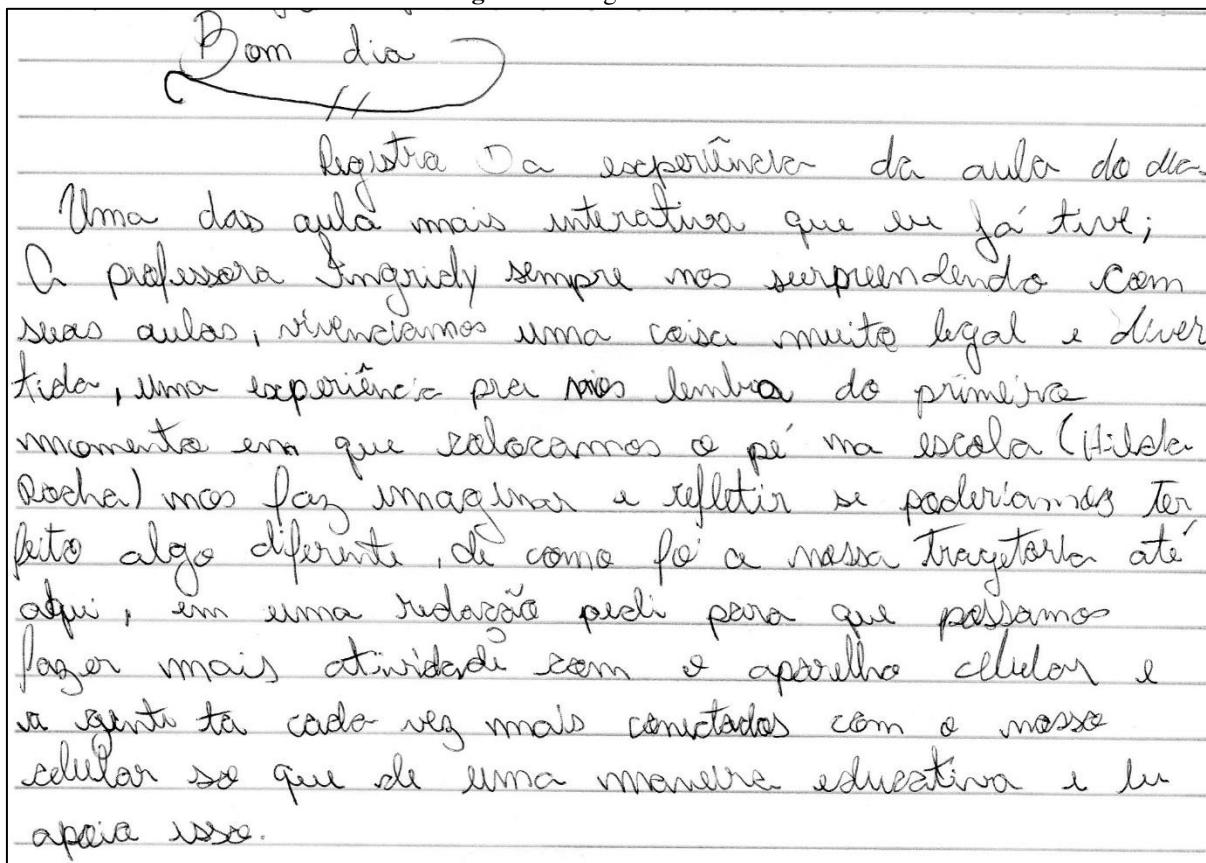 Bom dia
Registro Da experiência da aula do dia.
Uma das aula mais interativa que eu já tive;
A professora Ingridy sempre nos surpreendendo com
suas aulas, vivenciamos uma coisa muito legal e diver
tida, uma experiência pra nos lembra do primeiro
momento em que colocamos o pé na escola (Hilda
Rocha) nos faz imaginar e refletir se poderíamos ter
feito algo diferente, de como foi a nossa tragetoria até
aqui, em uma redação pedi para que possamos
fazer mais atividade com o aparelho celular e
a gente ta cada vez mais conectados com o nosso
celular so que de uma maneira educativa e eu
apoio isso.